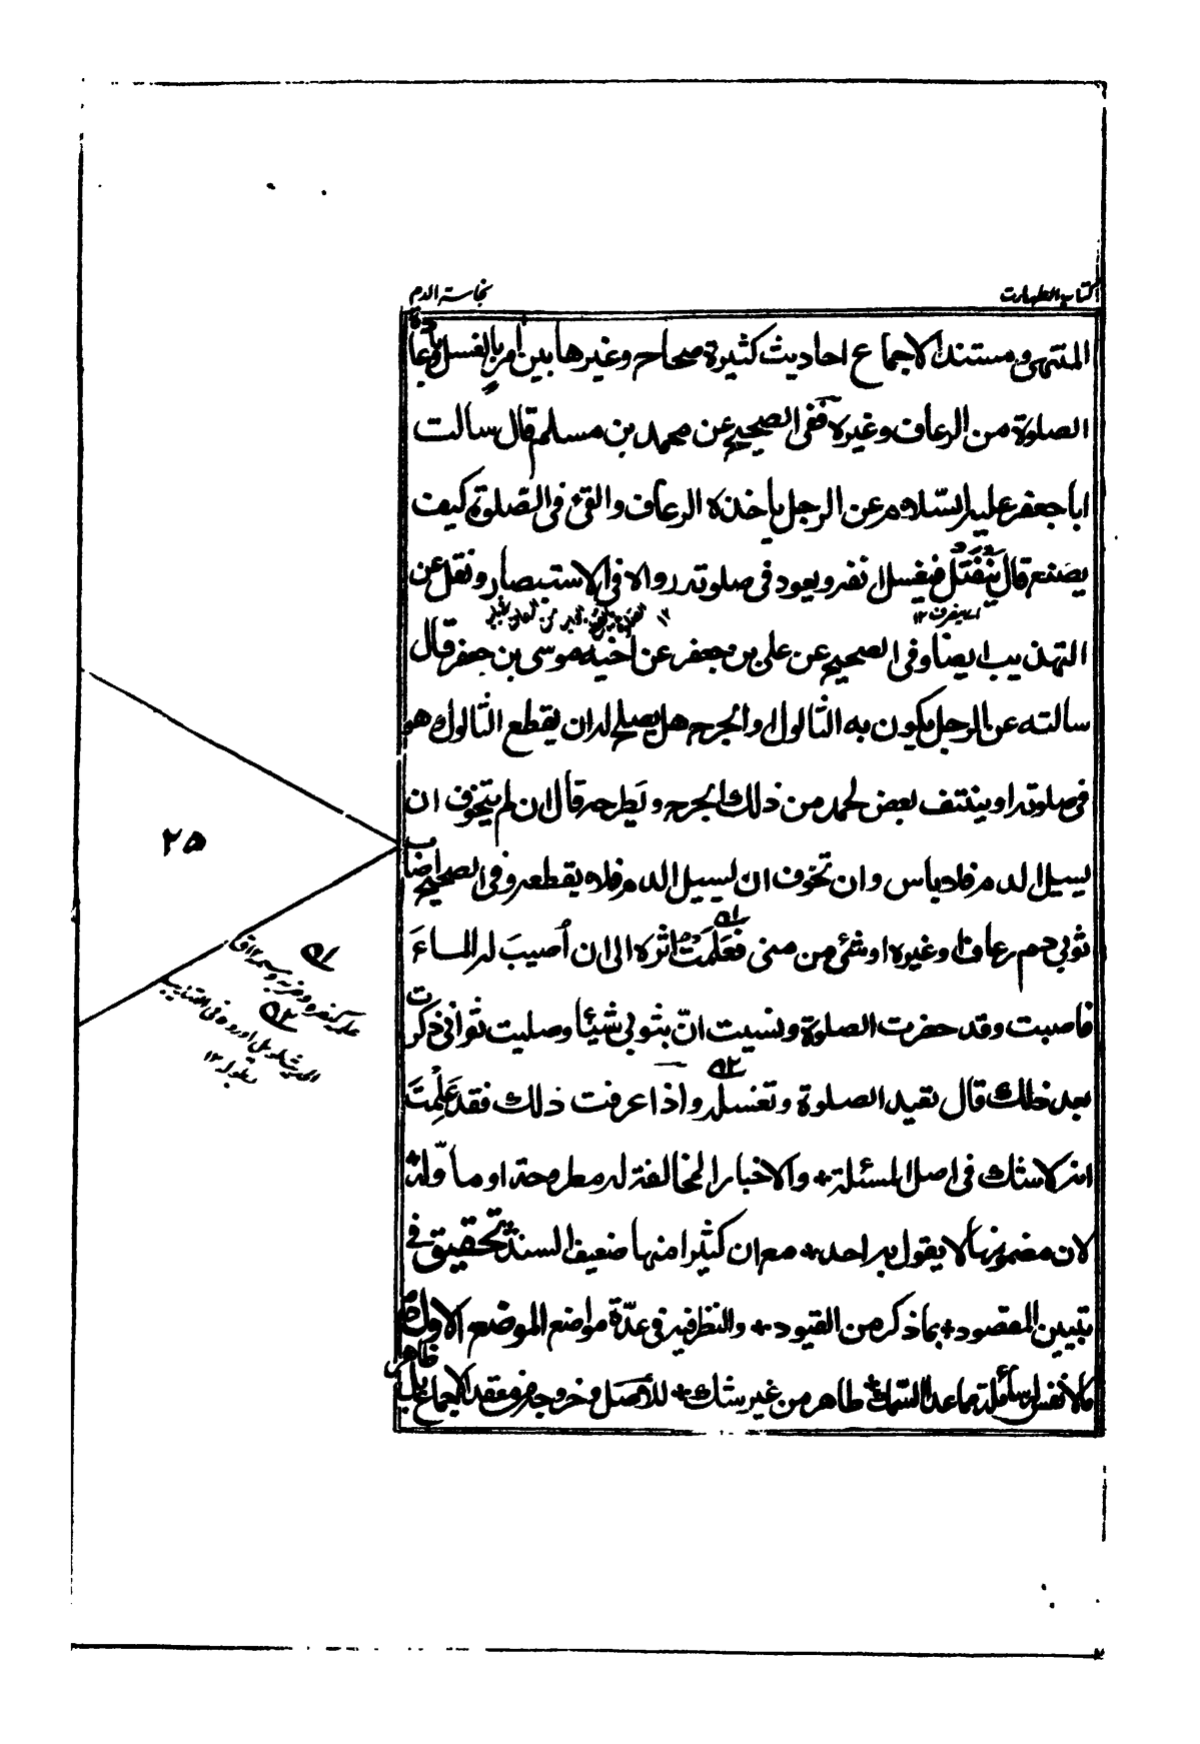 كتاب الطهارت
نجاسة الدم
المنتهى ومستند الاجماع احاديث كثيرة صحاح وغيرها بين امر بالغسل واعادة
الصلوة من الرعاف وغيره ففى الصحيح عن محمد بن مسلم قال سالت
ابا جعفر عليه السلام عن الرجل ياخذه الرعاف والقئ فى الصلوة كيف
يصنع قال ينفتل فيغسل انفه ويعود فى صلوته رواه فى الاستبصار ونقل عن
اے ينصرف ١٢
التهذيب ايضا وفى الصحيح عن على بن جعفر عن اخيه موسى بن جعفر قال
سالته عن الرجل يكون به الثالول والجرح هل يصلح له ان يقطع الثالول وهو
فى صلوته او ينتف بعض لحمه من ذلك الجرح ويطرحه قال ان لم يتخوف ان
يسيل الدم فلا باس وان تخوف ان يسيل الدم فلا يقطعه وفى الصحيح اصاب
ثوبى دم رعاف او غيره او شئ من منى فعلمت اثره الى ان اصيب له الماء
فاصبت وقد حضرت الصلوة ونسيت ان بثوبى شيئا وصليت ثم انى ذكرت
بعد ذلك قال تعيد الصلوة وتغسله واذا عرفت ذلك فقد علمت
انه لا شك فى اصل المسئلة والاخبار المخالفة له مطروحة او مأولة
لان مضمونها لا يقول به احد مع ان كثيرا منها ضعيف السند تحقيق فى
تبيين المقصود بما ذكر من القيود والنظر فيه فى عدة مواضع الموضع الاول
ما لا نفس له سائلة ما عدا السمك طاهر من غير شك للاصل وخروجه من معقد الاجماع بل ظاهر
٢٥
ے١
ے٢